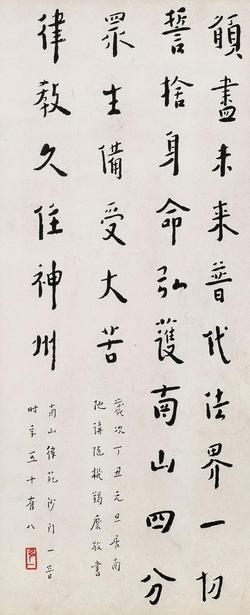 願盡未来普代法界一切
誓捨身命弘護南山四分
眾生備受大苦
律教久住神州
歲次丁丑元旦居南
陀講隨機羯磨敬書
南山律苑沙門一音
時年五十有八